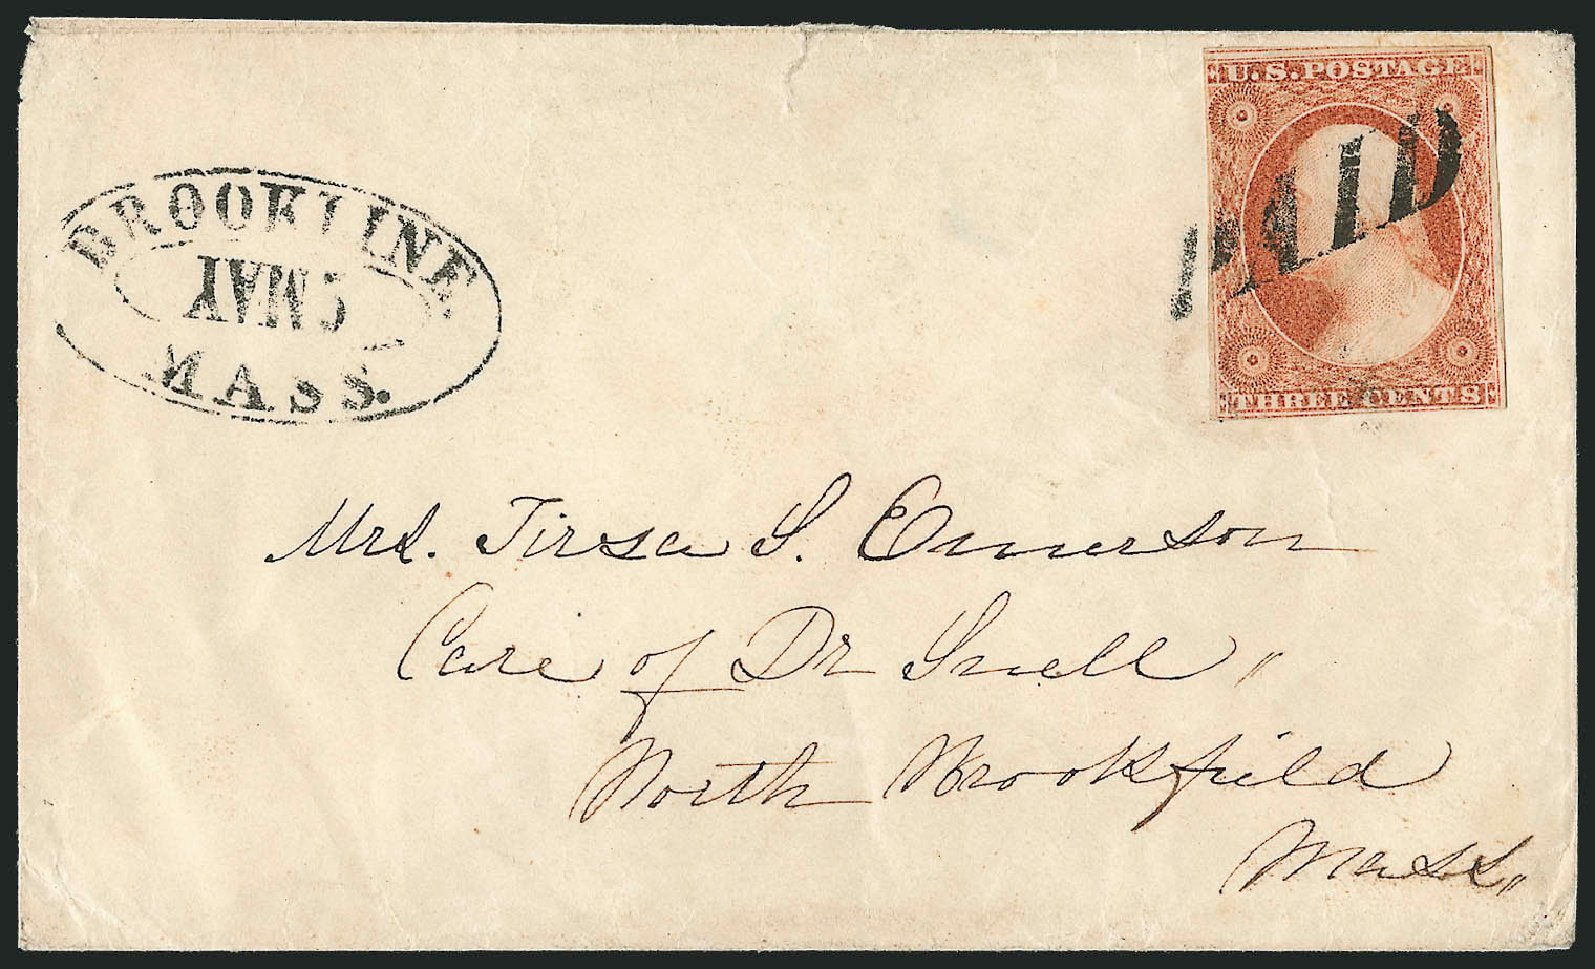 BROOKLINE.
MAY
MASS.
U.S. POSTAGE
PAID
THREE CENTS
Mrs. Tirsa S. Emerson
Care of Dr Snell,,
North Brookfield
Mass,,